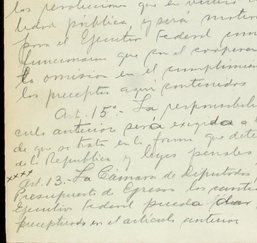 las resoluciones que en
lidad pública, y será motivo
para el Ejecutivo Federal
funcionarios que por el
la omisión en el cumplimien
los preceptos aquí contenidos
Art. 15º - La responsabili
culo anterior será exigida a
de que se trata en la forma que dete
de la República y leyes penales
xxxx
Art. 13.- La Cámara de Diputados
Presupuesto de Egresos las
Ejecutivo Federal pueda dar
preceptuado en el artículo anterior